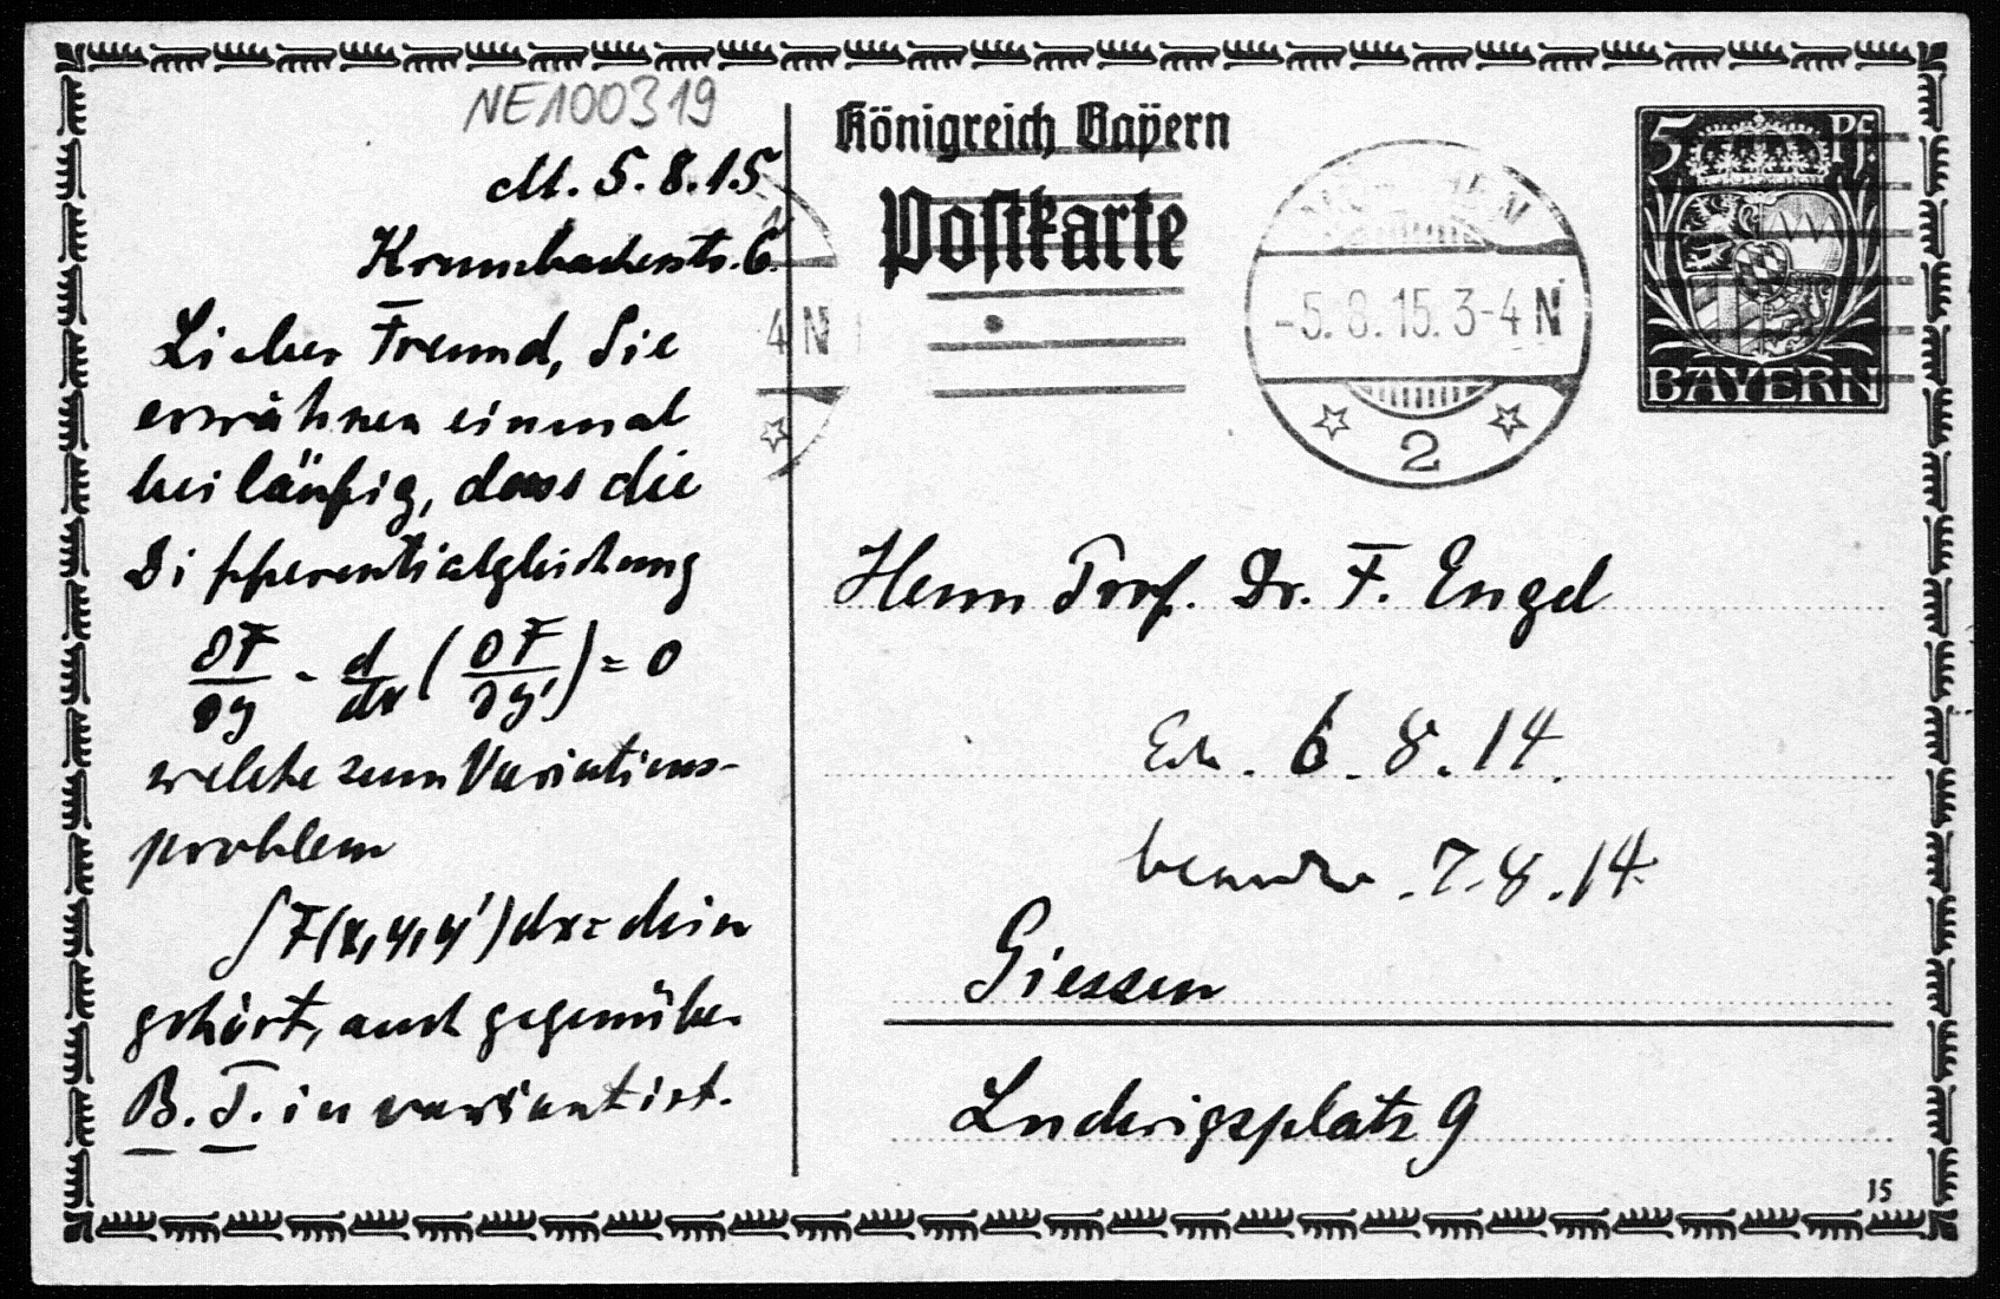 NE100319
M. 5.8.15
Krumbacherstr. 6.
Lieber Freund, Sie
erwähnen einmal
beiläufig, dass die
Differentialgleichung
∂F/∂y - d/dx (∂F/∂y') = 0
welche zum Variations-
problem
∫F(x,y,y')dx =
gehört, auch gegenüber
B. T. invariant ist.
Königreich Bayern
Postkarte
5 Pf.
BAYERN
MÜNCHEN
-5.8.15.3-4 N
2
4 N
Herrn Prof. Dr. F. Engel
6.8.14.
7.8.14.
Giessen
Ludwigsplatz 9
15